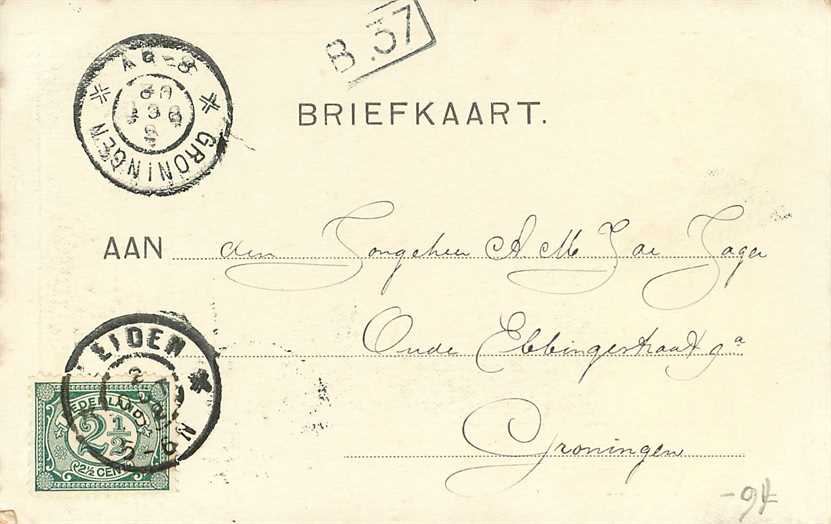 B.37
GRONINGEN
BRIEFKAART.
AAN den Jongeheer A M J de Jager
Oude Ebbingestraat 9a
Groningen
LEIDEN
5-6 N
NEDERLAND
2 1/2
2½ CENT